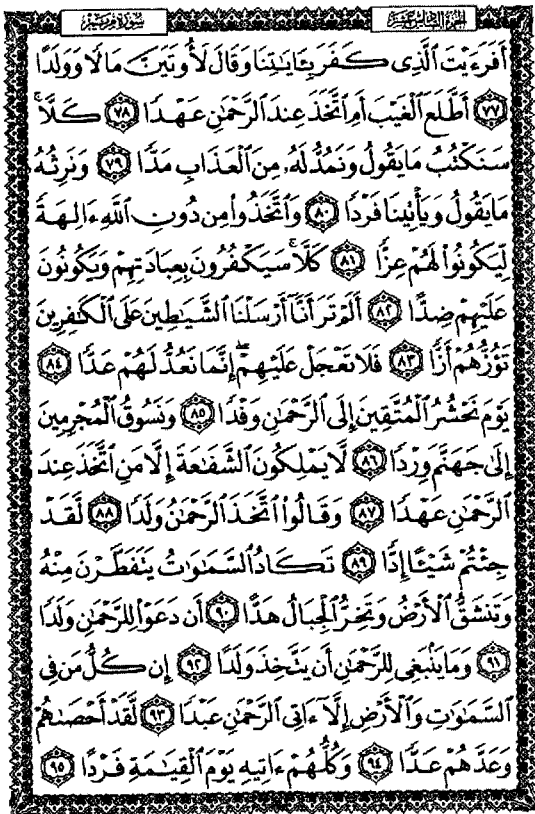 سُورَةُ مَرْيَمَ الجُزْءُ السَّادِسَ عَشَرَ
أَفَرَءَيْتَ ٱلَّذِى كَفَرَ بِـَٔايَـٰتِنَا وَقَالَ لَأُوتَيَنَّ مَالًا وَوَلَدًا
٧٧ أَطَّلَعَ ٱلْغَيْبَ أَمِ ٱتَّخَذَ عِندَ ٱلرَّحْمَـٰنِ عَهْدًا ٧٨ كَلَّا ۚ
سَنَكْتُبُ مَا يَقُولُ وَنَمُدُّ لَهُۥ مِنَ ٱلْعَذَابِ مَدًّا ٧٩ وَنَرِثُهُۥ
مَا يَقُولُ وَيَأْتِينَا فَرْدًا ٨٠ وَٱتَّخَذُوا۟ مِن دُونِ ٱللَّهِ ءَالِهَةً
لِّيَكُونُوا۟ لَهُمْ عِزًّا ٨١ كَلَّا ۚ سَيَكْفُرُونَ بِعِبَادَتِهِمْ وَيَكُونُونَ
عَلَيْهِمْ ضِدًّا ٨٢ أَلَمْ تَرَ أَنَّآ أَرْسَلْنَا ٱلشَّيَـٰطِينَ عَلَى ٱلْكَـٰفِرِينَ
تَؤُزُّهُمْ أَزًّا ٨٣ فَلَا تَعْجَلْ عَلَيْهِمْ ۖ إِنَّمَا نَعُدُّ لَهُمْ عَدًّا ٨٤
يَوْمَ نَحْشُرُ ٱلْمُتَّقِينَ إِلَى ٱلرَّحْمَـٰنِ وَفْدًا ٨٥ وَنَسُوقُ ٱلْمُجْرِمِينَ
إِلَىٰ جَهَنَّمَ وِرْدًا ٨٦ لَّا يَمْلِكُونَ ٱلشَّفَـٰعَةَ إِلَّا مَنِ ٱتَّخَذَ عِندَ
ٱلرَّحْمَـٰنِ عَهْدًا ٨٧ وَقَالُوا۟ ٱتَّخَذَ ٱلرَّحْمَـٰنُ وَلَدًا ٨٨ لَّقَدْ
جِئْتُمْ شَيْـًٔا إِدًّا ٨٩ تَكَادُ ٱلسَّمَـٰوَٰتُ يَتَفَطَّرْنَ مِنْهُ
وَتَنشَقُّ ٱلْأَرْضُ وَتَخِرُّ ٱلْجِبَالُ هَدًّا ٩٠ أَن دَعَوْا۟ لِلرَّحْمَـٰنِ وَلَدًا
٩١ وَمَا يَنۢبَغِى لِلرَّحْمَـٰنِ أَن يَتَّخِذَ وَلَدًا ٩٢ إِن كُلُّ مَن فِى
ٱلسَّمَـٰوَٰتِ وَٱلْأَرْضِ إِلَّآ ءَاتِى ٱلرَّحْمَـٰنِ عَبْدًا ٩٣ لَّقَدْ أَحْصَىٰهُمْ
وَعَدَّهُمْ عَدًّا ٩٤ وَكُلُّهُمْ ءَاتِيهِ يَوْمَ ٱلْقِيَـٰمَةِ فَرْدًا ٩٥